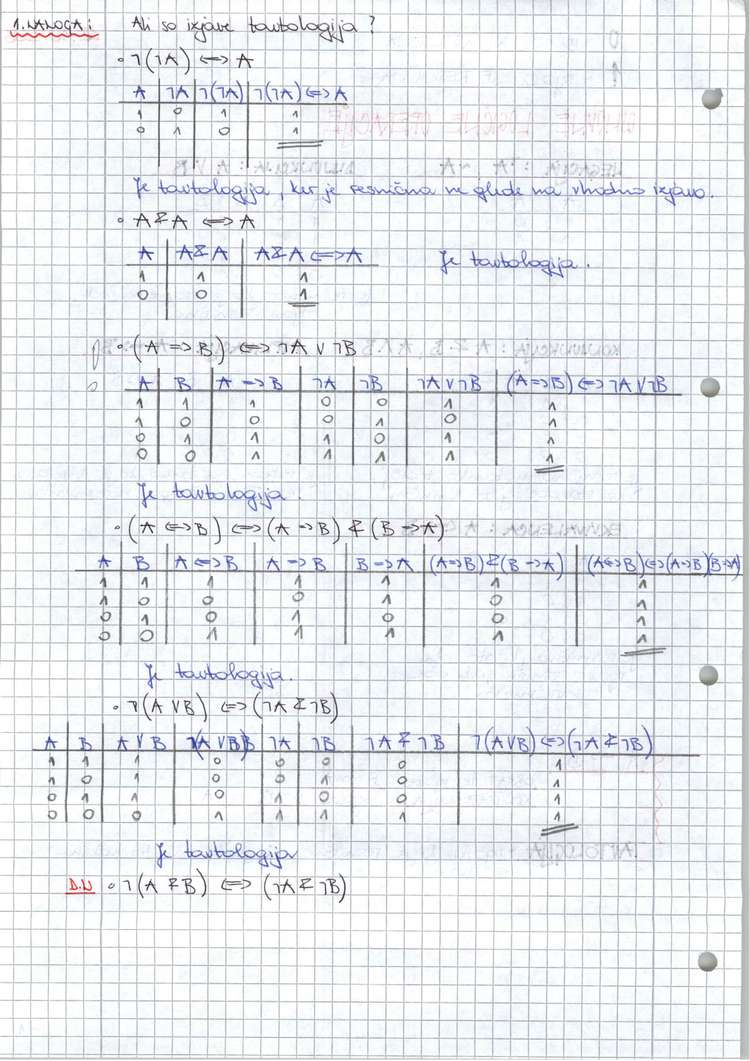 1. NALOGA: Ali so izjave tavtologija?
• ¬(¬A) <=> A
A | ¬A | ¬(¬A) | ¬(¬A) <=> A
1 | 0 | 1 | 1
0 | 1 | 0 | 1
Je tavtologija, ker je resnična ne glede na vhodno izjavo.
• A & A <=> A
A | A & A | A & A <=> A Je tavtologija.
1 | 1 | 1
0 | 0 | 1
• (A => B) <=> ¬A ∨ ¬B
A | B | A => B | ¬A | ¬B | ¬A ∨ ¬B | (A => B) <=> ¬A ∨ ¬B
1 | 1 | 1 | 0 | 0 | 1 | 1
1 | 0 | 0 | 0 | 1 | 0 | 1
0 | 1 | 1 | 1 | 0 | 1 | 1
0 | 0 | 1 | 1 | 1 | 1 | 1
Je tavtologija.
• (A <=> B) <=> (A => B) & (B => A)
A | B | A <=> B | A => B | B => A | (A => B) & (B => A) | (A <=> B) <=> (A => B)(B => A)
1 | 1 | 1 | 1 | 1 | 1 | 1
1 | 0 | 0 | 0 | 1 | 0 | 1
0 | 1 | 0 | 1 | 0 | 0 | 1
0 | 0 | 1 | 1 | 1 | 1 | 1
Je tavtologija.
• ¬(A ∨ B) <=> (¬A & ¬B)
A | B | A ∨ B | ¬(A ∨ B) | ¬A | ¬B | ¬A & ¬B | ¬(A ∨ B) <=> (¬A & ¬B)
1 | 1 | 1 | 0 | 0 | 0 | 0 | 1
1 | 0 | 1 | 0 | 0 | 1 | 0 | 1
0 | 1 | 1 | 0 | 1 | 0 | 0 | 1
0 | 0 | 0 | 1 | 1 | 1 | 1 | 1
Je tavtologija
D.N • ¬(A & B) <=> (¬A & ¬B)